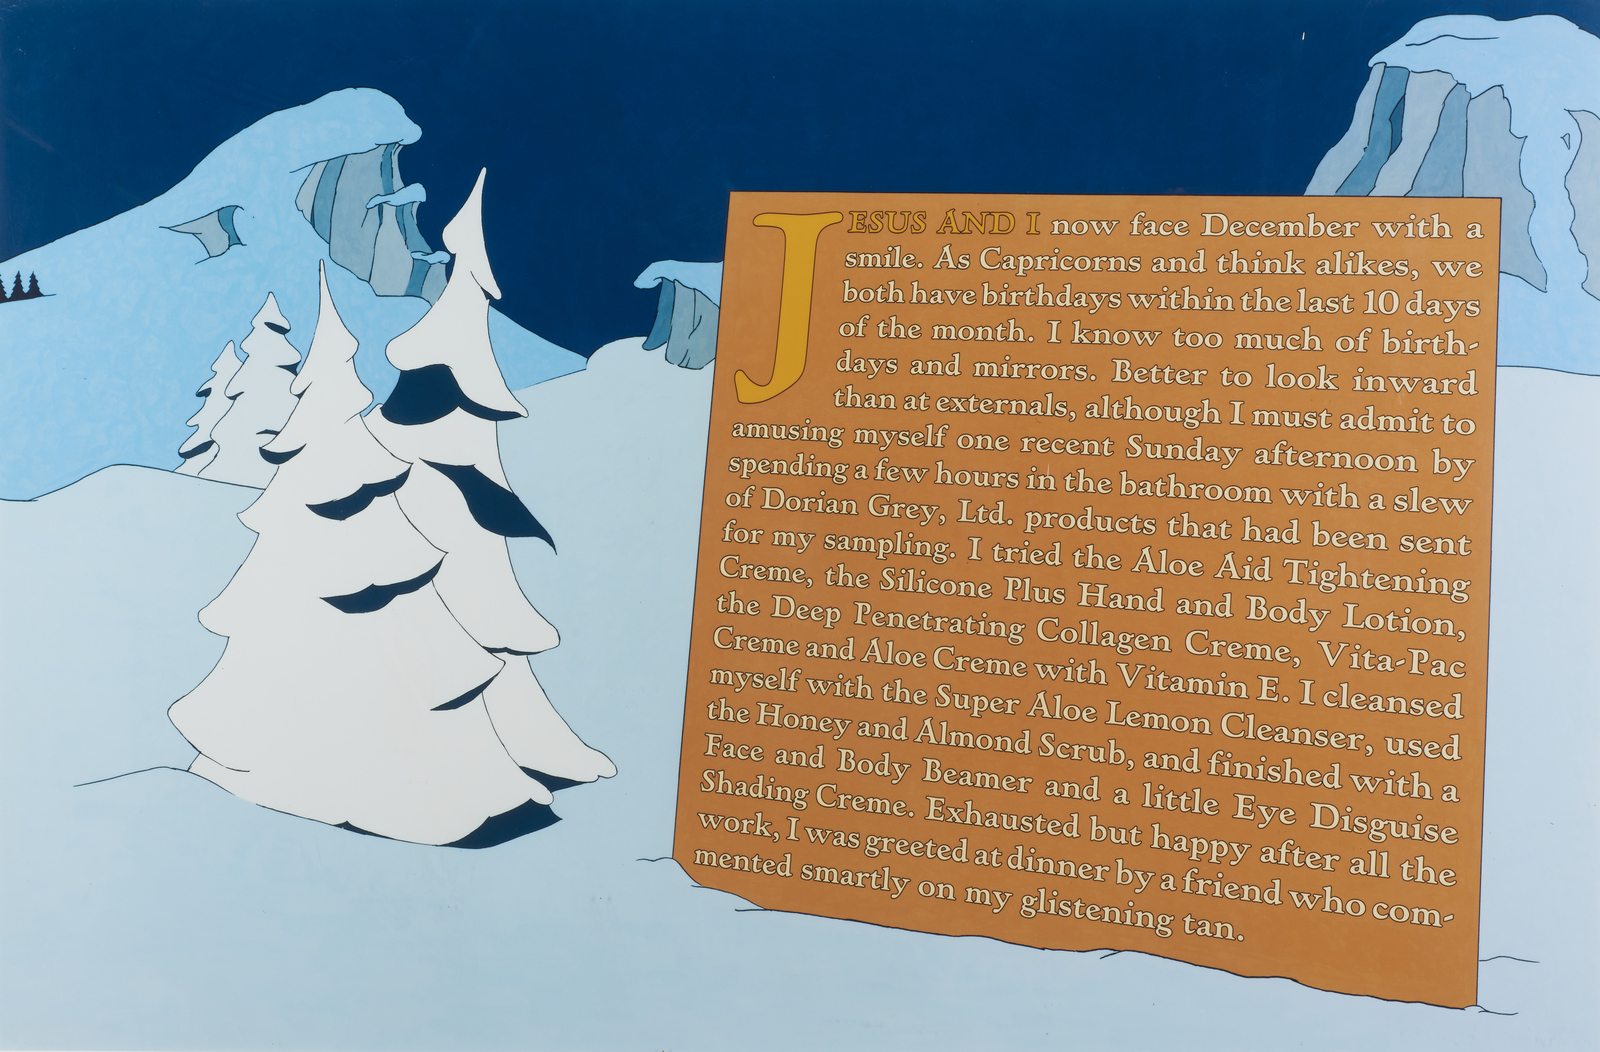 JESUS AND I now face December with a
smile. As Capricorns and think alikes, we
both have birthdays within the last 10 days
of the month. I know too much of birth-
days and mirrors. Better to look inward
than at externals, although I must admit to
amusing myself one recent Sunday afternoon by
spending a few hours in the bathroom with a slew
of Dorian Grey, Ltd. products that had been sent
for my sampling. I tried the Aloe Aid Tightening
Creme, the Silicone Plus Hand and Body Lotion,
the Deep Penetrating Collagen Creme, Vita-Pac
Creme and Aloe Creme with Vitamin E. I cleansed
myself with the Super Aloe Lemon Cleanser, used
the Honey and Almond Scrub, and finished with a
Face and Body Beamer and a little Eye Disguise
Shading Creme. Exhausted but happy after all the
work, I was greeted at dinner by a friend who com-
mented smartly on my glistening tan.